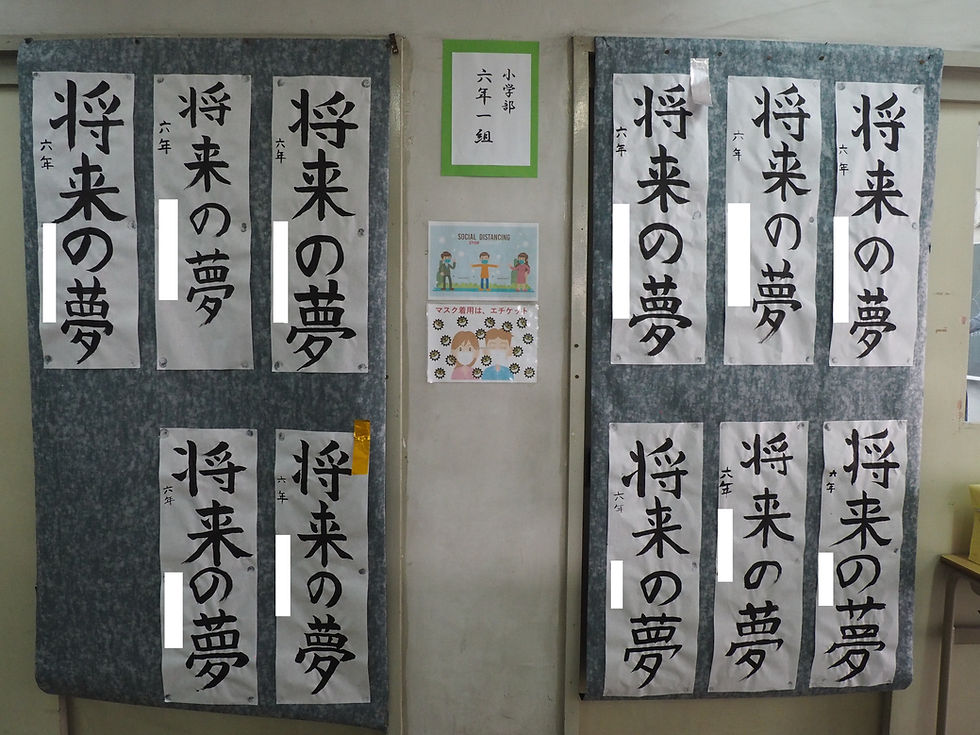 将来の夢
六年
将来の夢
六年
将来の夢
六年
将来の夢
六年
将来の夢
六年
小学部
六年一組
SOCIAL DISTANCING
マスク着用は、エチケット
将来の夢
六年
将来の夢
六年
将来の夢
六年
将来の夢
六年
将来の夢
六年
将来の夢
六年